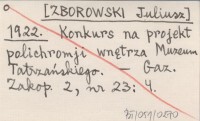 [ZBOROWSKI Juliusz]
1922. Konkurs na projekt
polichromji wnętrza Muzeum
Tatrzańskiego. — Gaz.
Zakop. 2, nr 23: 4.